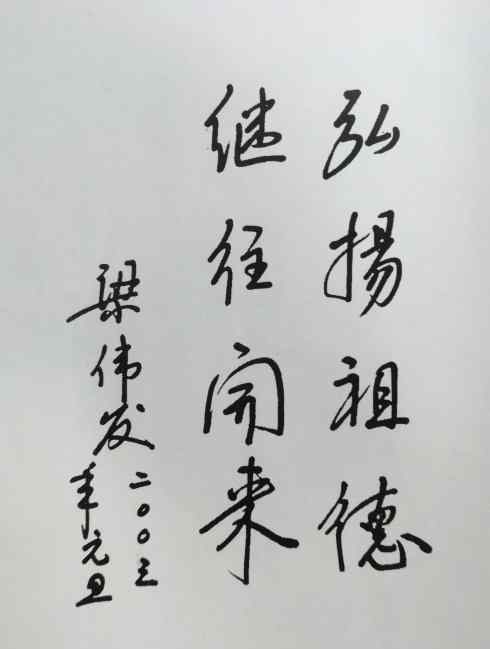 弘揚祖德
继往開来
梁伟发
二〇〇三
年元旦